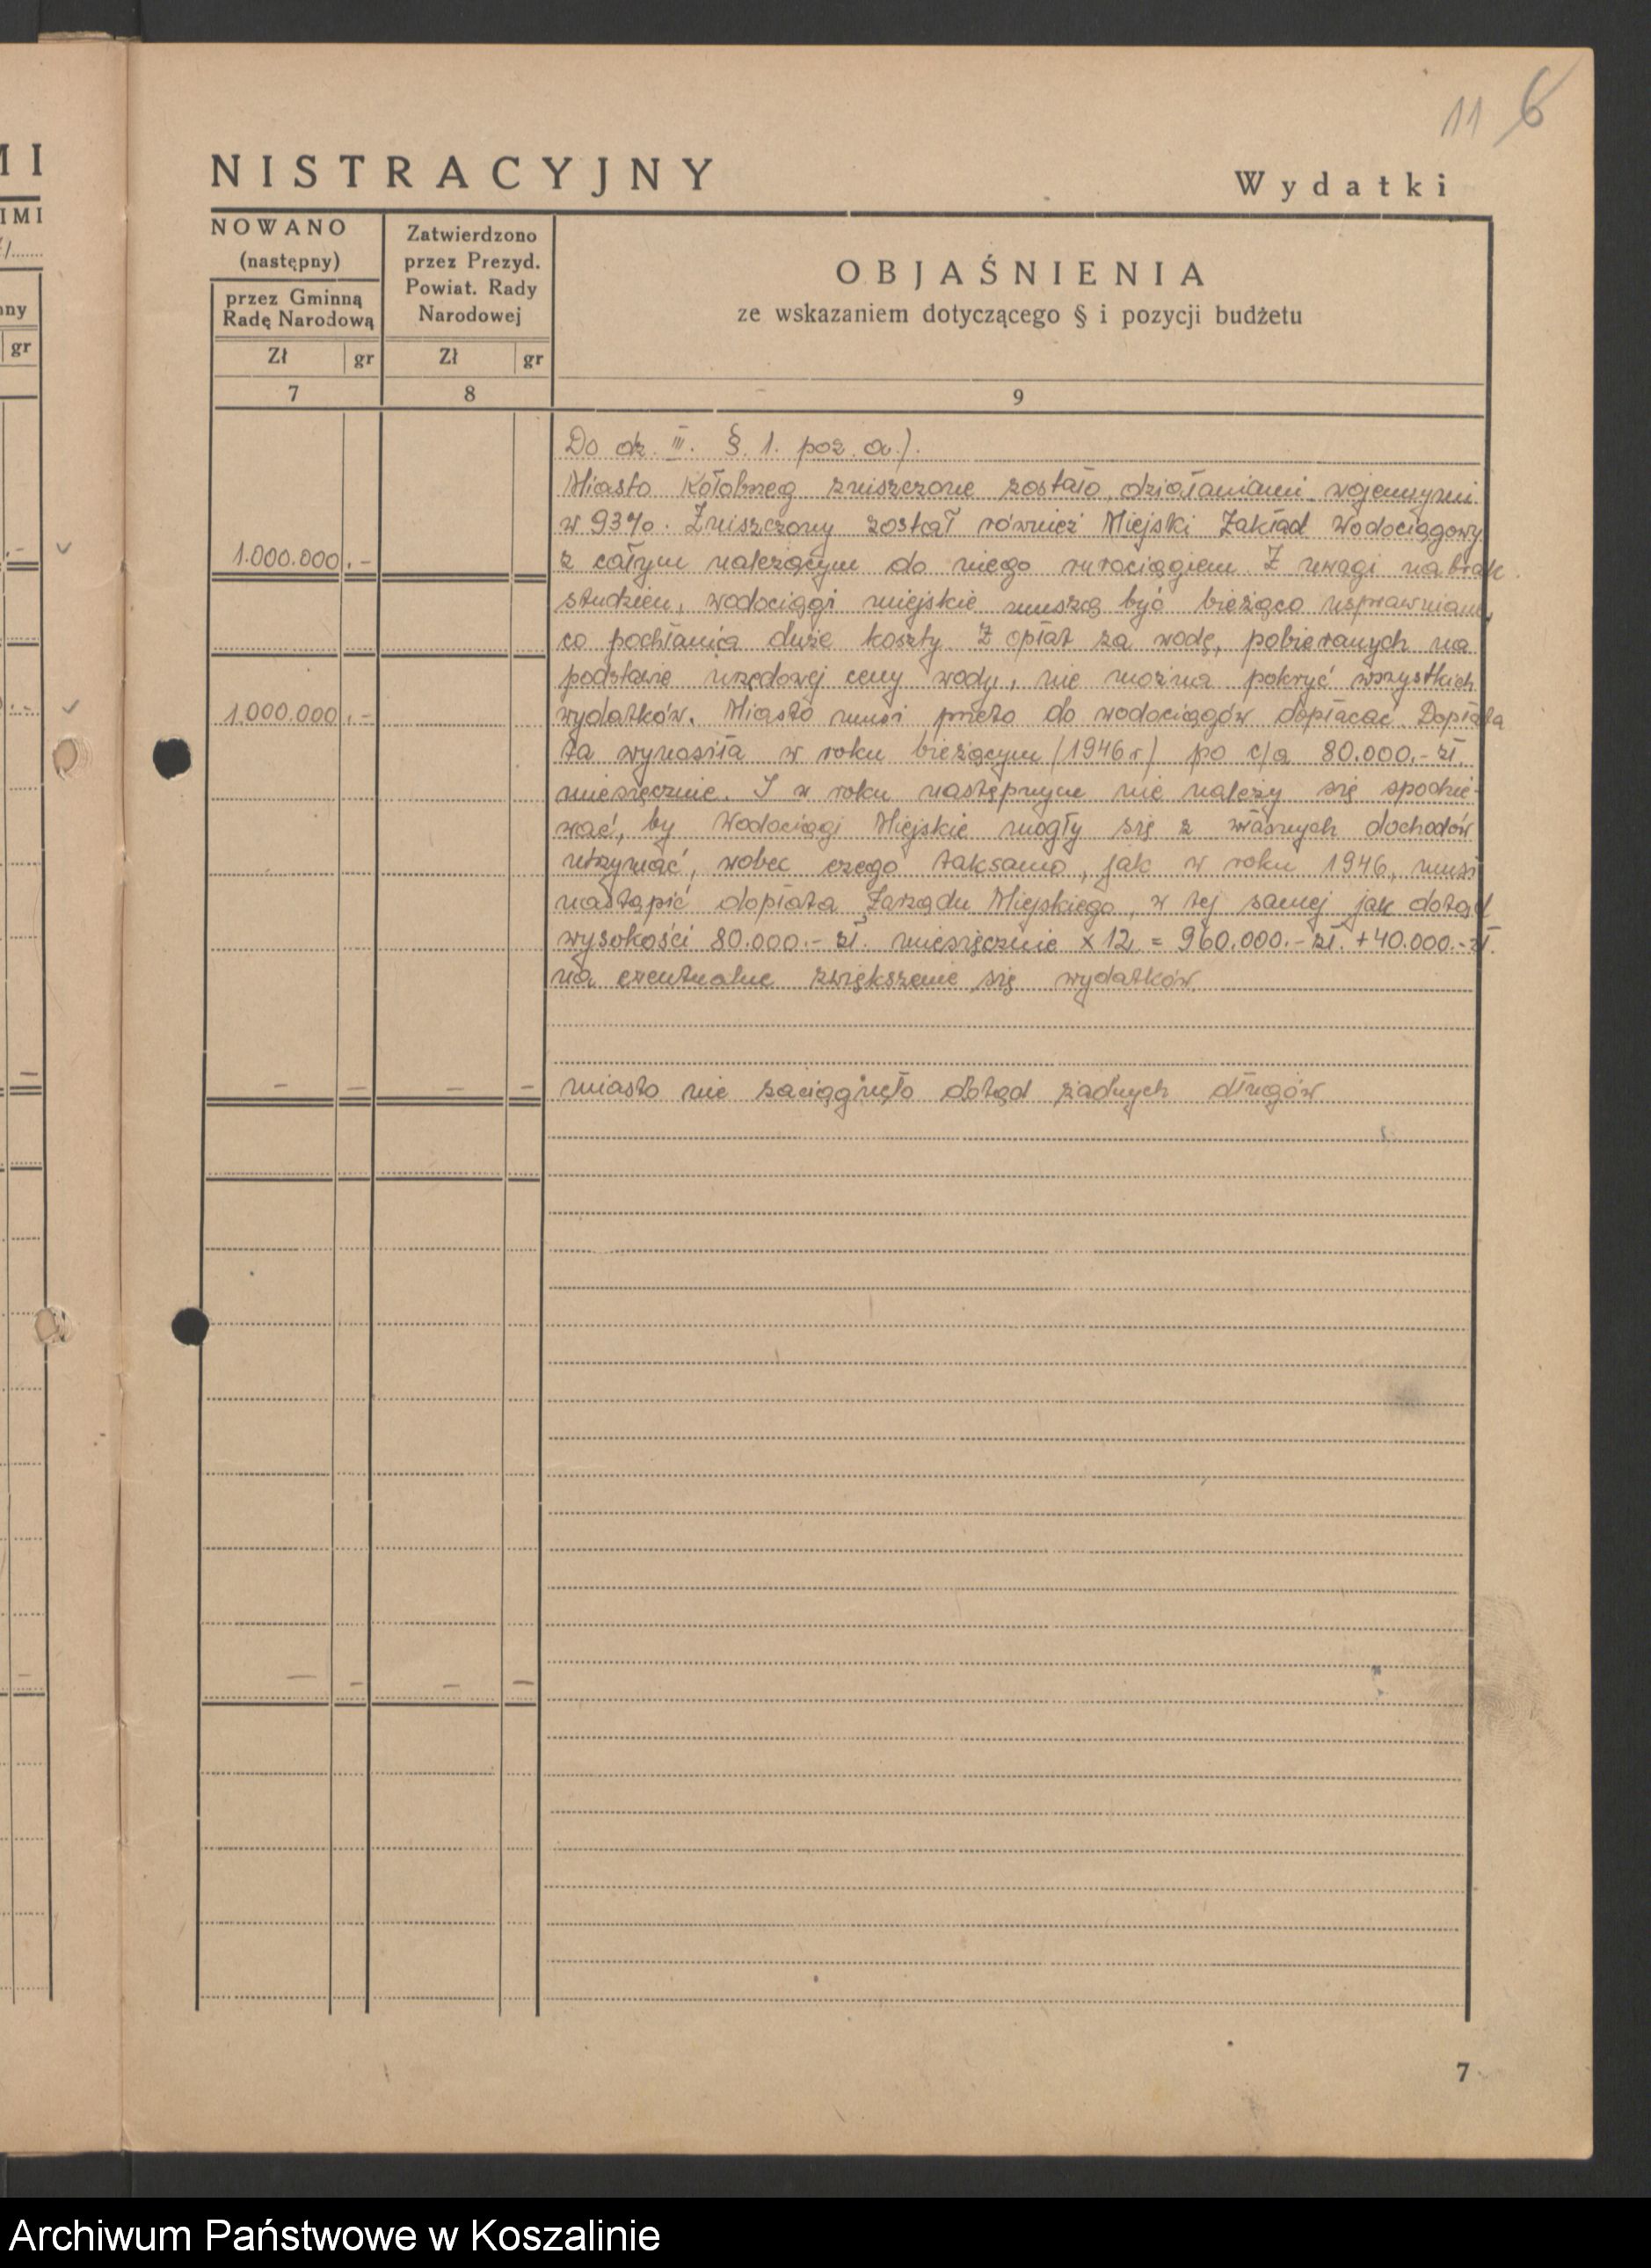 11 6
MI
NISTRACYJNY
Wydatki
IMI
NOWANO
(następny)
przez Gminną
Radę Narodową
Zatwierdzono
przez Prezyd.
Powiat. Rady
Narodowej
OBJAŚNIENIA
ze wskazaniem dotyczącego § i pozycji budżetu
ny
gr
Zł gr Zł gr
7 8 9
Do dz. III. § 1. poz. a.).
Miasto Kołobrzeg zniszczone zostało działaniami wojennymi
w 93%. Zniszczony został również Miejski Zakład Wodociągowy
1.000.000 .- z całym należącym do niego rurociągiem. Z uwagi na brak
studzien, wodociągi miejskie muszą być bieżąco usprawniane,
co pochłania duże koszty. Z opłat za wodę, pobieranych na
podstawie urzędowej ceny wody, nie można pokryć wszystkich
1.000.000 .- wydatków. Miasto musi przeto do wodociągów dopłacać. Dopłata
ta wynosiła w roku bieżącym /1946 r/ po c/a 80.000.- zł.
miesięcznie. I w roku następnym nie należy się spodzie-
wać, by Wodociągi Miejskie mogły się z własnych dochodów
utrzymać, wobec czego taksamo, jak w roku 1946, musi
nastąpić dopłata Zarządu Miejskiego, w tej samej jak dotąd
wysokości 80.000.- zł. miesięcznie x 12 = 960.000.- zł. + 40.000.- zł.
na ewentualne zwiększenie się wydatków.
- - - - miasto nie zaciągnęło dotąd żadnych długów
- - - -
7
Archiwum Państwowe w Koszalinie